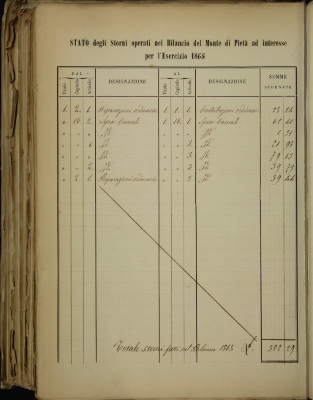 STATO degli Storni operati nel Bilancio del Monte di Pietà ad interesse
per l'Esercizio 1865
DAL AL SOMME
Titolo Capitolo Articolo DESIGNAZIONE Titolo Capitolo Articolo DESIGNAZIONE STORNATE
1. 2. 1 Riparazioni ordinarie 1. 1. 1.
" 10. 2. Spese Casuali 1. 10. 1. Spese Casuali 61 40
" " " Id. " " " Id. 1 31
" " Id. " " Id.
" " " Id. " " 3. Id. 79 13
" " 2. Id. " " 3 Id. 39 79
" 2 1. Riparazioni ordinarie " " 3. Id. 39 44
Totale storni fatti nel Bilancio 1865 302 29